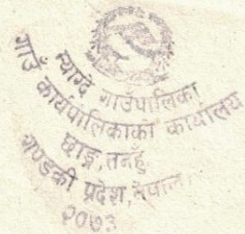 म्याग्दे गाउँपालिका
गाउँ कार्यपालिकाको कार्यालय
छाङ्ग, तनहुँ
गण्डकी प्रदेश, नेपाल
२०७३